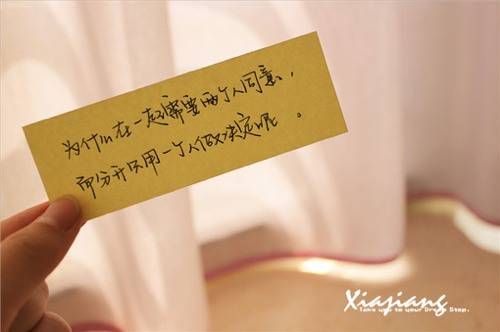 为什么在一起需要两个人同意,
而分开只用一个人做决定呢。
Xiajiang
Take you to your Drug Step.